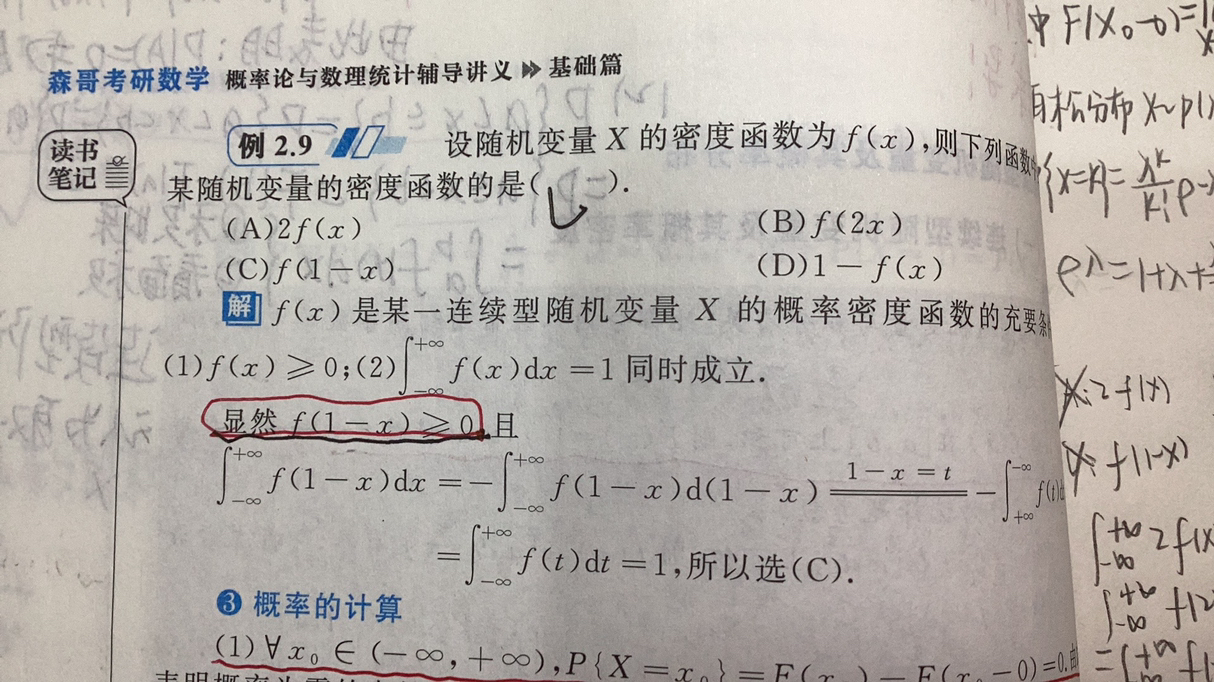 森哥考研数学 概率论与数理统计辅导讲义 基础篇
读书
笔记
例 2.9 设随机变量 X 的密度函数为 f(x),则下列函数
某随机变量的密度函数的是( ).
(A)2f(x) (B)f(2x)
(C)f(1-x) (D)1-f(x)
解 f(x)是某一连续型随机变量 X 的概率密度函数的充要条
(1)f(x)≥0;(2)∫_{-∞}^{+∞} f(x)dx=1 同时成立.
显然 f(1-x)≥0,且
∫_{-∞}^{+∞} f(1-x)dx=-∫_{-∞}^{+∞} f(1-x)d(1-x) 1-x=t -∫_{+∞}^{-∞} f(t)
=∫_{-∞}^{+∞} f(t)dt=1,所以选(C).
❸ 概率的计算
(1)∀x₀∈(-∞,+∞),P{X=x₀}=F(x₀)-F(x₀-0)=0.
中 F(x₀-0)=
分布 X~P(
{X=k}=
e^λ=1+λ+
2f(x)
f(1-x)
∫_{-∞}^{+∞} 2f(x
∫_{-∞}^{+∞} f(2
=∫